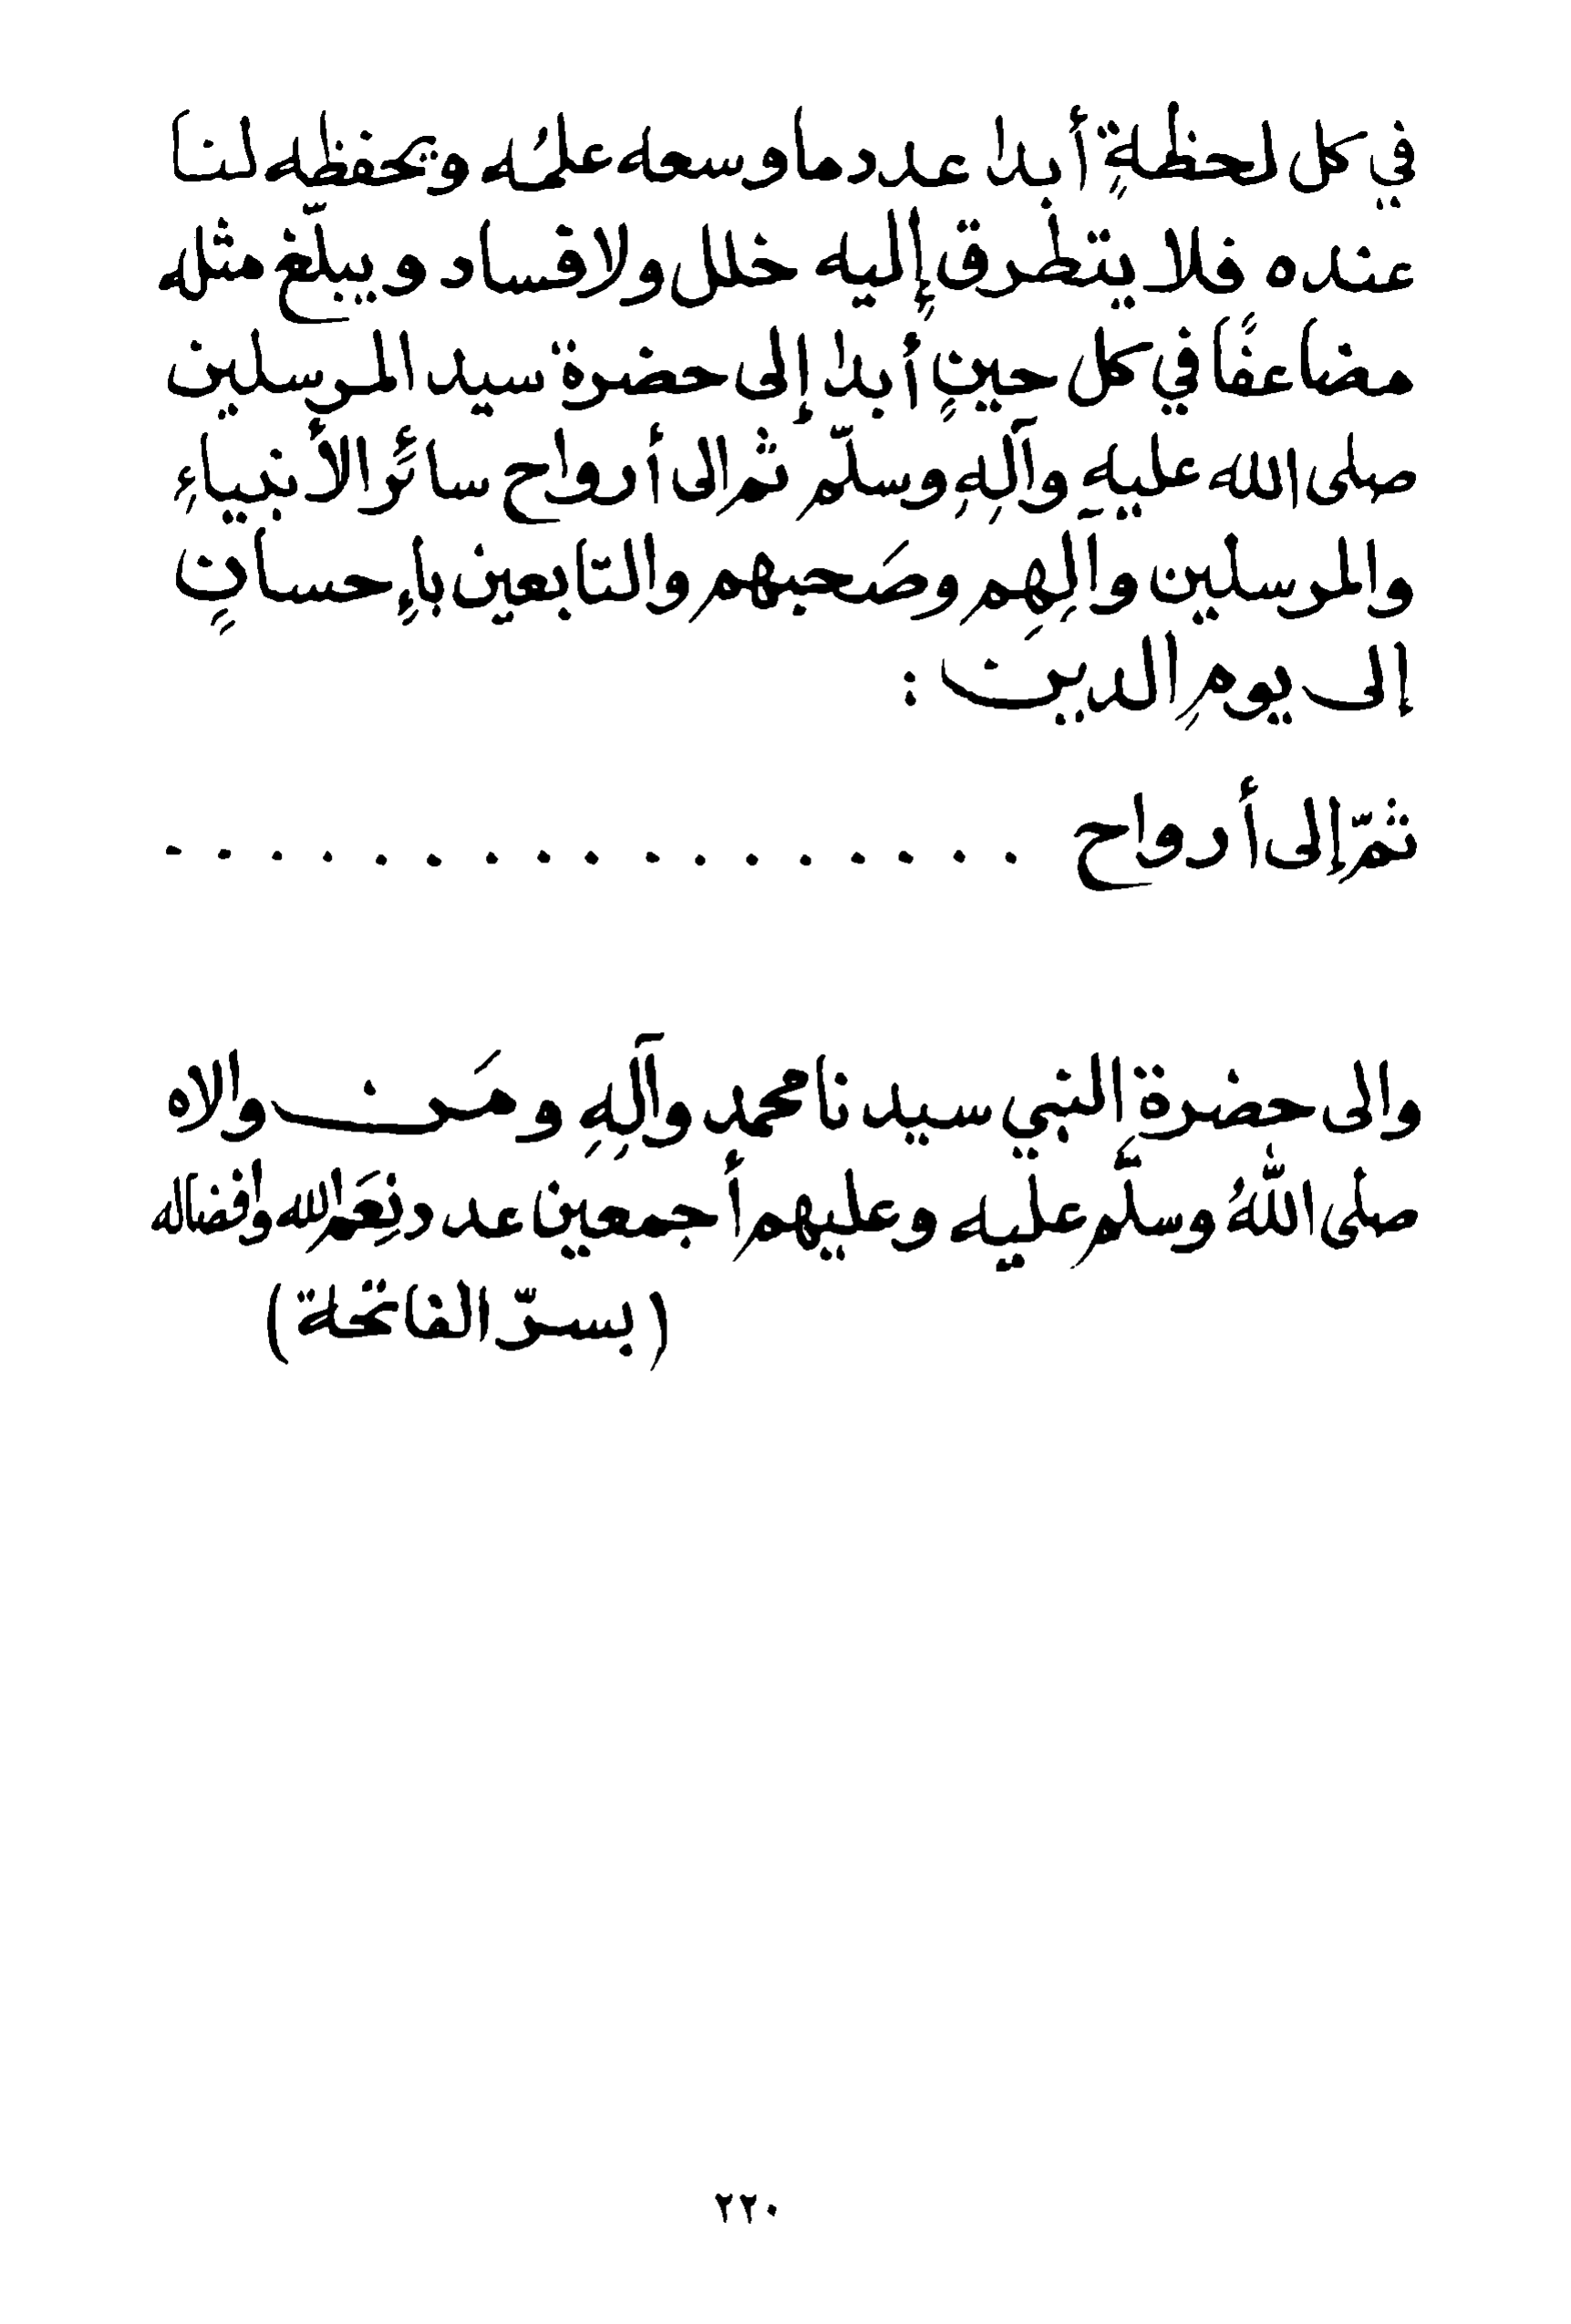 في كل لحظةٍ أبدا عدد ما وسعه علمُه وتحفظه لنا
عنده فلا يتطرق إليه خلل ولا فساد ويبلّغ مثله
مضاعفًا في كل حينٍ أبدا إلى حضرة سيد المرسلين
صلى الله عليهِ وآلِهِ وسلّم ثم إلى أرواح سائر الأنبياءِ
والمرسلين وآلِهِم وصَحبهم والتابعين بإحسانٍ
إلى يومِ الدين :
ثمّ إلى أرواح . . . . . . . . . . . . . . . . .
والى حضرة النبي سيدنا محمد وآلِهِ ومَن والاه
صلى اللهُ وسلَّم عليه وعليهم أجمعين عدد نِعَم الله وافضاله
(بسرّ الفاتحة)
٢٢٠